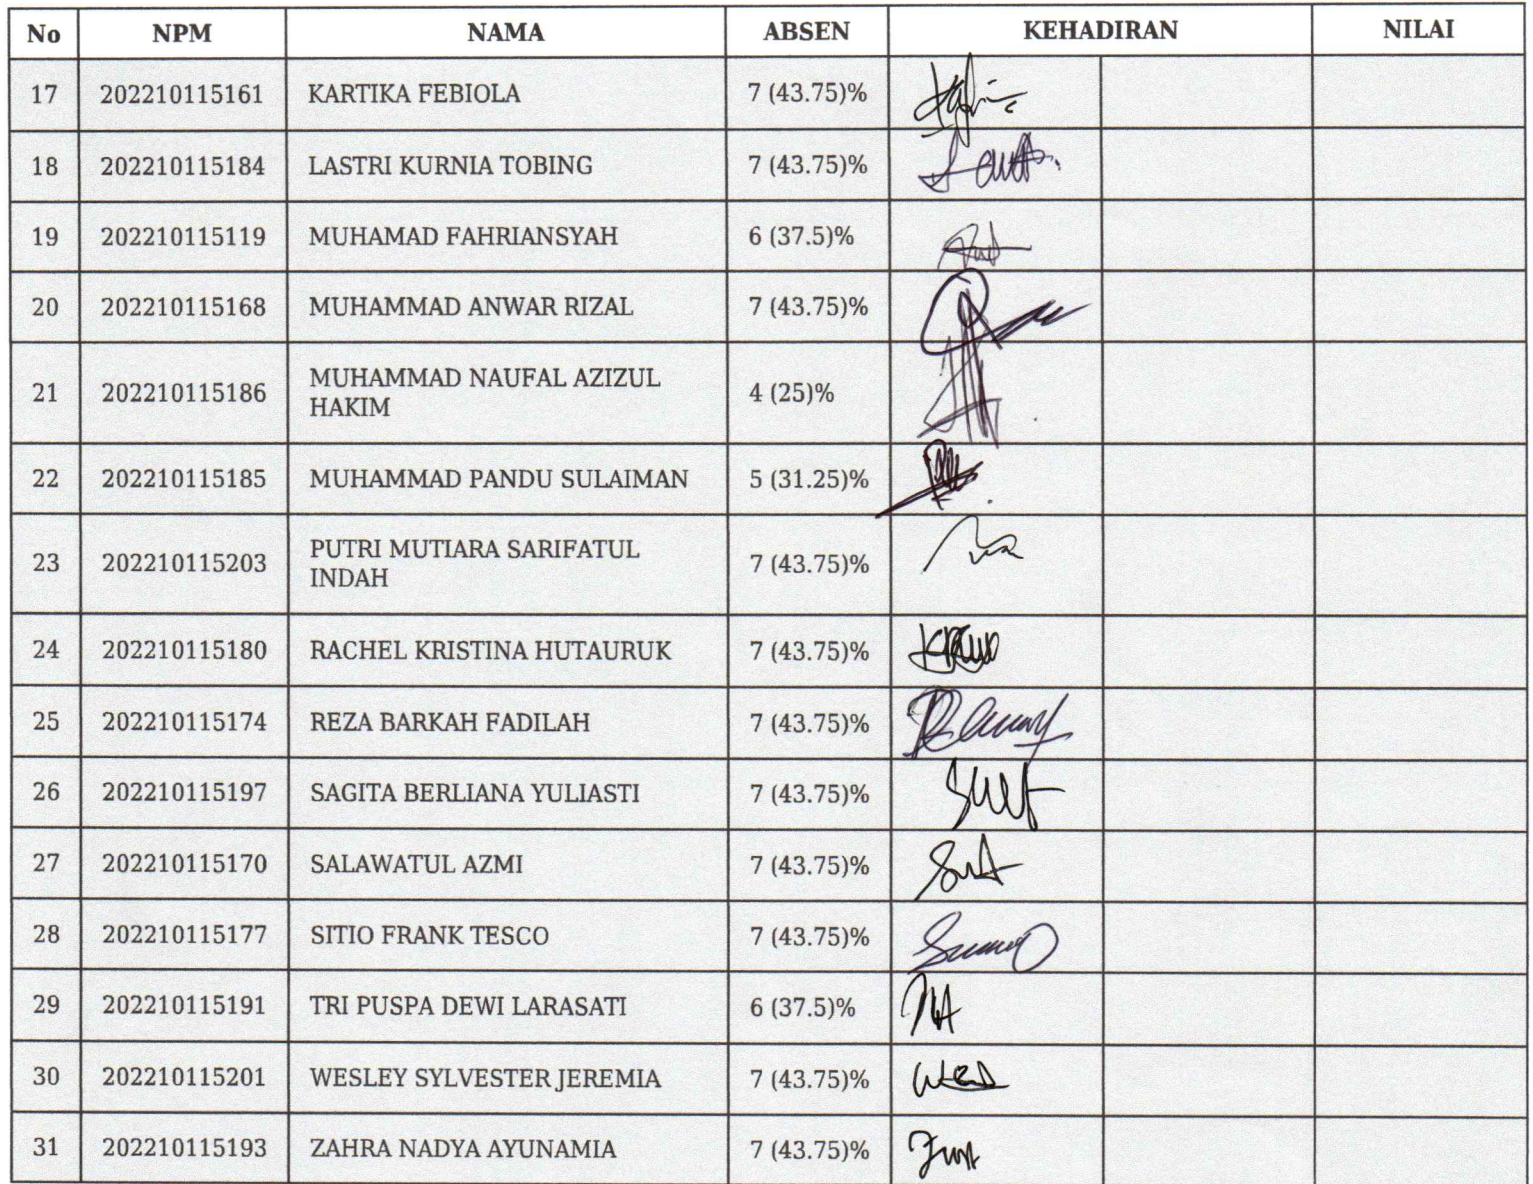 No NPM NAMA ABSEN KEHADIRAN NILAI
17 202210115161 KARTIKA FEBIOLA 7 (43.75)%
18 202210115184 LASTRI KURNIA TOBING 7 (43.75)%
19 202210115119 MUHAMAD FAHRIANSYAH 6 (37.5)%
20 202210115168 MUHAMMAD ANWAR RIZAL 7 (43.75)%
21 202210115186 MUHAMMAD NAUFAL AZIZUL 4 (25)%
HAKIM
22 202210115185 MUHAMMAD PANDU SULAIMAN 5 (31.25)%
23 202210115203 PUTRI MUTIARA SARIFATUL 7 (43.75)%
INDAH
24 202210115180 RACHEL KRISTINA HUTAURUK 7 (43.75)%
25 202210115174 REZA BARKAH FADILAH 7 (43.75)%
26 202210115197 SAGITA BERLIANA YULIASTI 7 (43.75)%
27 202210115170 SALAWATUL AZMI 7 (43.75)%
28 202210115177 SITIO FRANK TESCO 7 (43.75)%
29 202210115191 TRI PUSPA DEWI LARASATI 6 (37.5)%
30 202210115201 WESLEY SYLVESTER JEREMIA 7 (43.75)%
31 202210115193 ZAHRA NADYA AYUNAMIA 7 (43.75)%